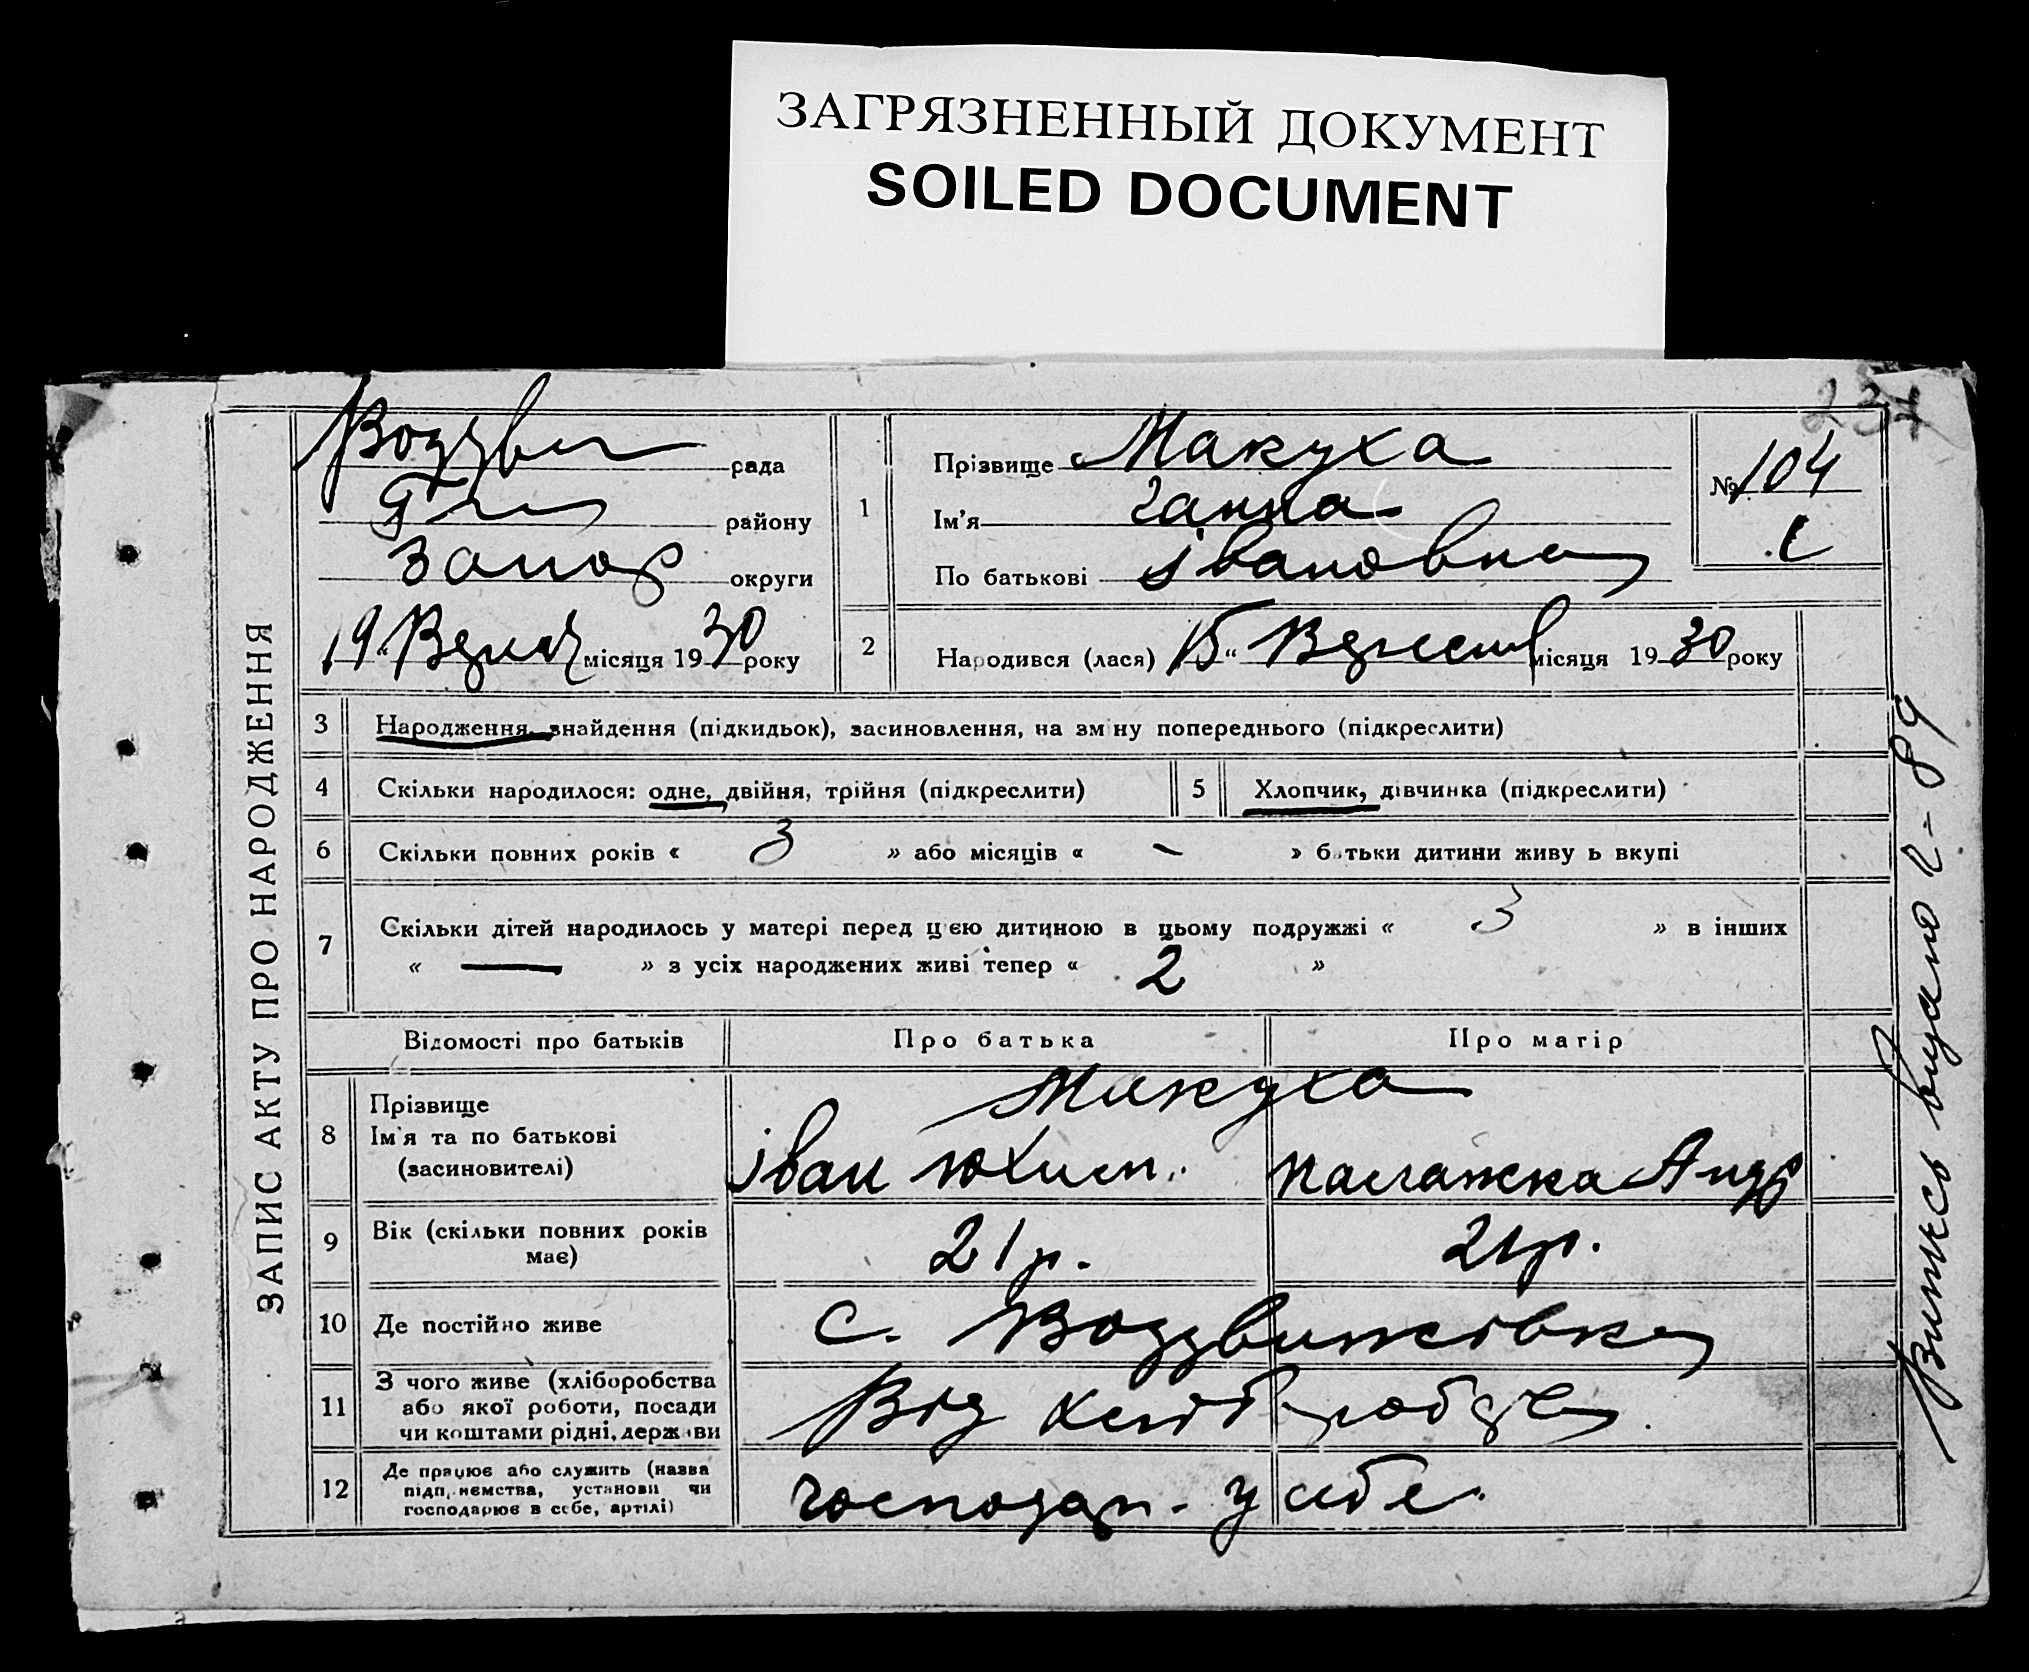 ЗАГРЯЗНЕННЫЙ ДОКУМЕНТ
SOILED DOCUMENT
ЗАПИС АКТУ ПРО НАРОДЖЕННЯ
рада
району
Запор округи
19 " місяця 1930 року
1
Прізвище Макуха
Ім'я Ганна
По батькові Івановна
№ 104
2 Народився (лася) 15 " Вересня місяця 1930 року
3 Народження, знайдення (підкидьок), засиновлення, на зміну попереднього (підкреслити)
4 Скільки народилося: одне, двійня, трійня (підкреслити)
5 Хлопчик, дівчинка (підкреслити)
6 Скільки повних років « 3 » або місяців « – » батьки дитини живуть вкупі
7 Скільки дітей народилось у матері перед цією дитиною в цьому подружжі « 3 » в інших
« — » з усіх народжених живі тепер « 2 »
Відомості про батьків Про батька Про матір
8 Прізвище
Ім'я та по батькові
(засиновителі)
Макуха
Іван Юхим. Палажка Андр
9 Вік (скільки повних років
має)
21 р. 21 р.
10 Де постійно живе с. Воздвижівка
11 З чого живе (хліборобства
або якої роботи, посади
чи коштами рідні, держави
Від
12 Де працює або служить (назва
підприємства, установи чи
господарює в себе, артілі)
господар. у себе.
Випись видано 2-89